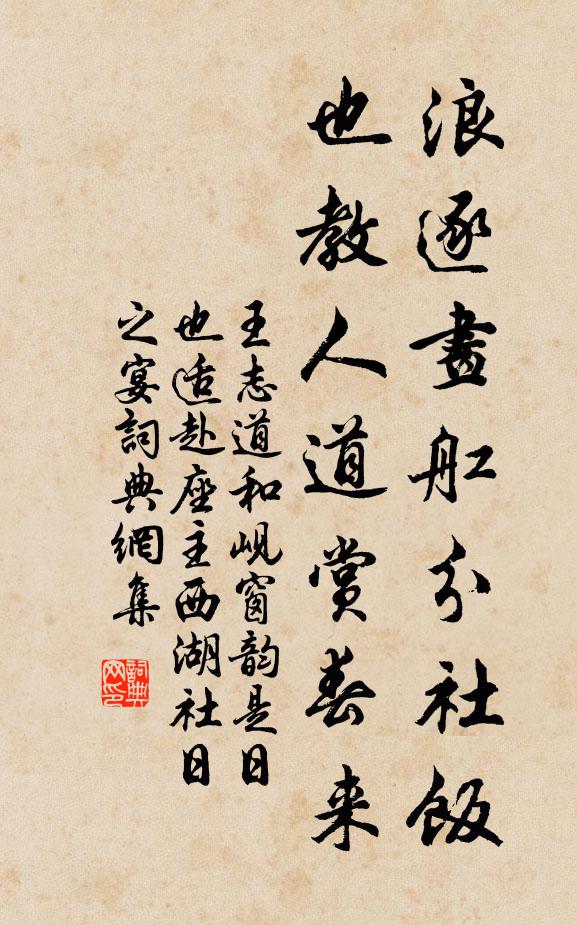 浪逐畫舡分社飯
也教人道賞春来
王志道和峴窗韵是日
也适赴座主西湖社日
之宴詞典網集
詞典网印